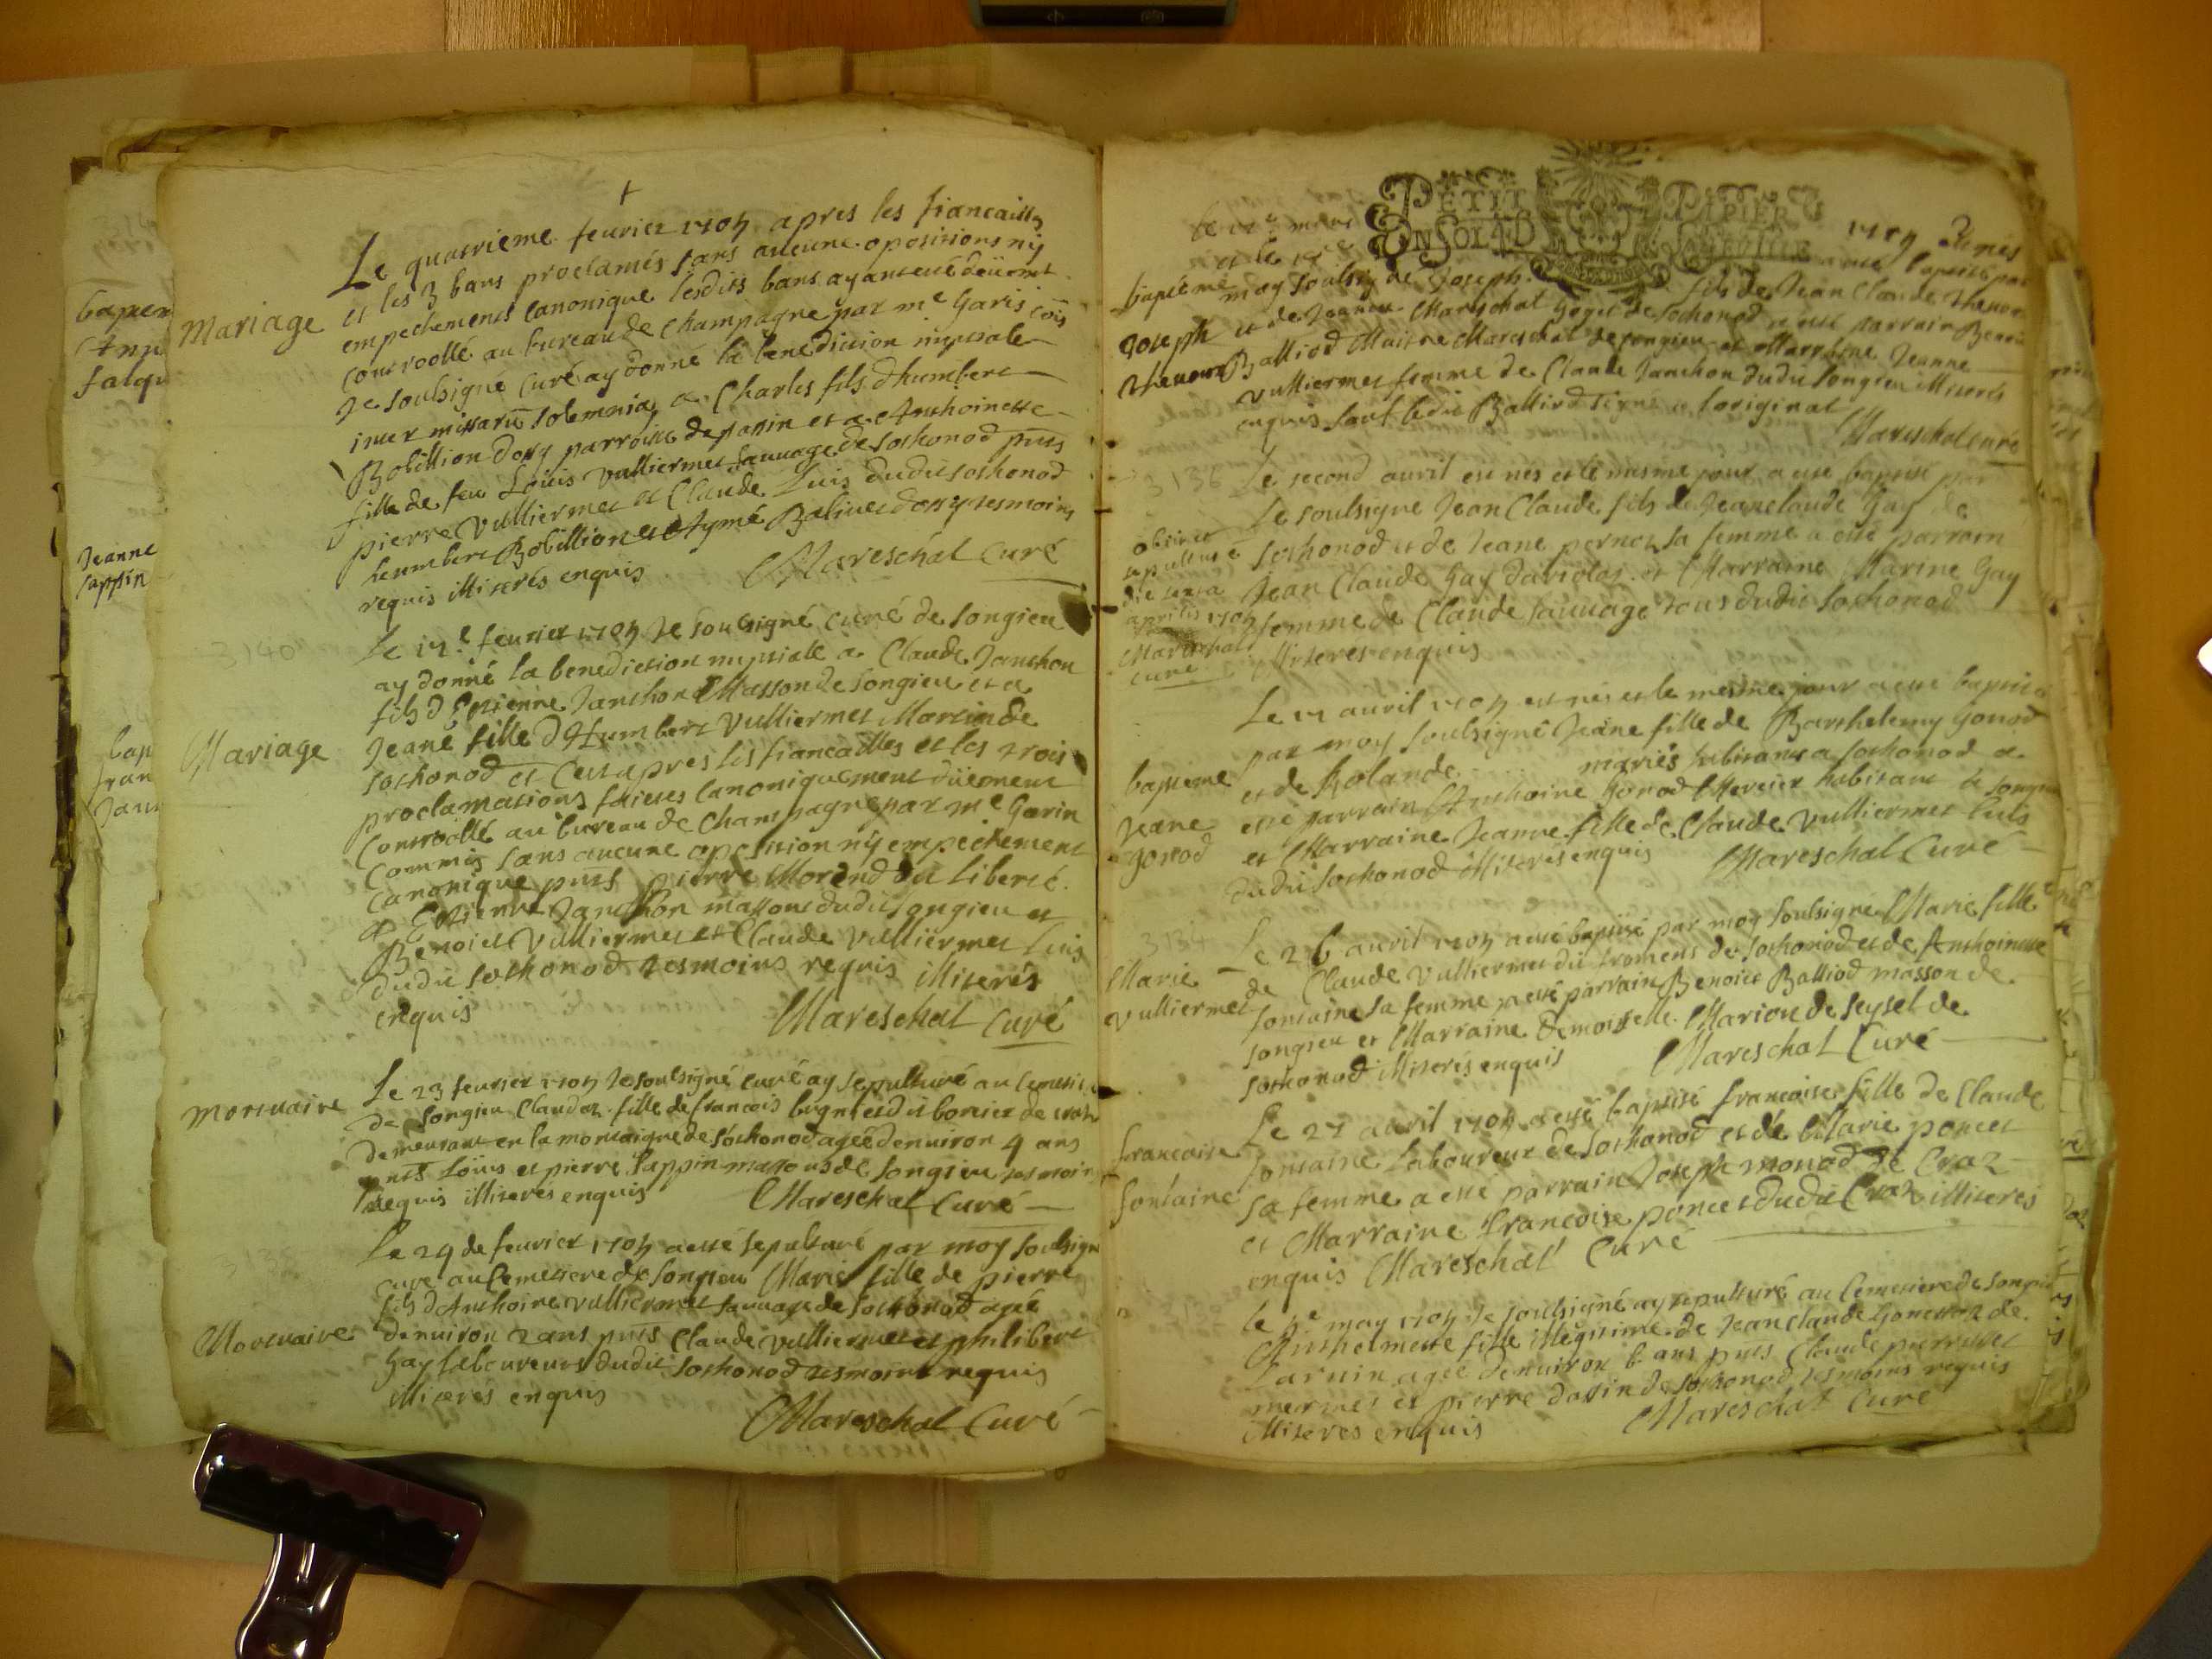 Mariage
Le quatrieme feurier 1704 apres les fiancailles
et les 3 bans proclamés sans aucune opositions ny
empechements canonique lesdits bans ayant esté deüemt
controollé au bureau de champagne par me Garin
Je soulsigné curé ay donné la benediction nuptiale
inter missarū solemnia a Charles fils dhumbert
Bobillion parroisse de et a Anthoinette
fille de feu Loüis Vulliermet sauuage de sothonod pnts
pierre Vulliermet et Claude Luis dudit sothonod
humbert Bobillion et Aymé tesmoins
requis illiterés enquis Mareschal Curé
3140
Mariage
Le feurier 1704 Je soulsigné curé de songieu
ay donné la benediction nuptiale a Claude Janthon
fils d Estienne Janthon Masson de songieu et a
Jeane fille d Humbert Vulliermet Martin de
sothonod et C'est apres les fiancailles et les trois
proclamations faictes canoniquement düement
Controollé au bureau de champagne par me Garin
Commis sans aucune oposition ny empechement
canonique pnts pierre Morend dit liberté
et Estienne Janthon massons dudit songieu et
Benoict Vulliermet et Claude Vulliermet Luis
dudit sothonod tesmoins requis illiterés
enquis Mareschal Curé
Mortuaire
Le 23 feurier 1704 Je soulsigné curé ay sepulturé au
de songieu Claudaz fille de francois dit de
demeurant en la montaigne de sothonod agée denuiron 4 ans
pnts Loüis et pierre sappin massons de songieu
requis illiterés enquis Mareschal Curé
Mortuaire
Le 24 de feurier 1704 a esté sepulturé par moy soulsigné
curé au Cemetiere de songieu Marie fille de pierre
fils d Anthoine vulliermet sauuage de sothonod agée
denuiron 2 ans pnts Claude vulliermet et philibert
Gay laboureurs dudit sothonod tesmoins requis
illiterés enquis
Mareschal Curé
PETIT PAPIER
UN SOL 4 D
1704
et le
baptéme
Joseph
moy soulsigné Joseph fils de Jean Claude
et de Mareschal de sothonod a esté parrain
Balliod Maitre Mareschal de songieu et Marraine Jeanne
Vulliermet femme de Claude Janthon dudit songieu illiterés
enquis sauf ledit Balliod signé a l'original
Mareschal curé
3136
Le second auril est nes et le mesme jour a esté baptisé par
Le soulsigne Jean Claude fils de Jean claude Gay de
sothonod et de Jeane pernet sa femme a esté parrain
Jean Claude Gay et Marraine Marine Gay
femme de Claude sauuage tous dudit sothonod
Illiteres enquis
obiit et
sepulturé
die
aprilis 1704
Mareschal
curé
baptéme
Jeane
gonod
Le auril 1704 est née et le mesme jour a esté baptisé
par moy soulsigné Jeane fille de Barthelemy Gonod
et de Rolande mariés habitants a sothonod a
esté parrain Anthoine Gonod Mercier habitant a
et Marraine Jeanne fille de Claude Vulliermet Luis
dudit sothonod illiterés enquis Mareschal Curé
3134
Marie
Vulliermet
Le 26 auril 1704 a esté baptisé par moy soulsigné Marie fille
de Claude Vulliermet dit froment de sothonod et de Anthoinette
fontaine sa femme a esté parrain Benoict Balliod masson de
songieu et Marraine demoiselle Marion de seyssel de
sothonod illiterés enquis Mareschal Curé
francoise
fontaine
Le 27 auril 1704 a esté baptisé francoise fille de Claude
fontaine laboureur de sothonod et de hilarie poncet
sa femme a esté parrain Joseph monod de Craz
et Marraine Francoise poncet dudit Craz illiteres
enquis Mareschal Curé
le may 1704 Je soulsigné ay sepulturé au Cemetiere de songieu
Anthelmette fille illegitime de Jean claude Gonettaz de
agée denuiron 6 ans pnts Claude
mermet et pierre dauin de sothonod tesmoins requis
illiteres enquis Mareschal Curé
Jeanne
sappin